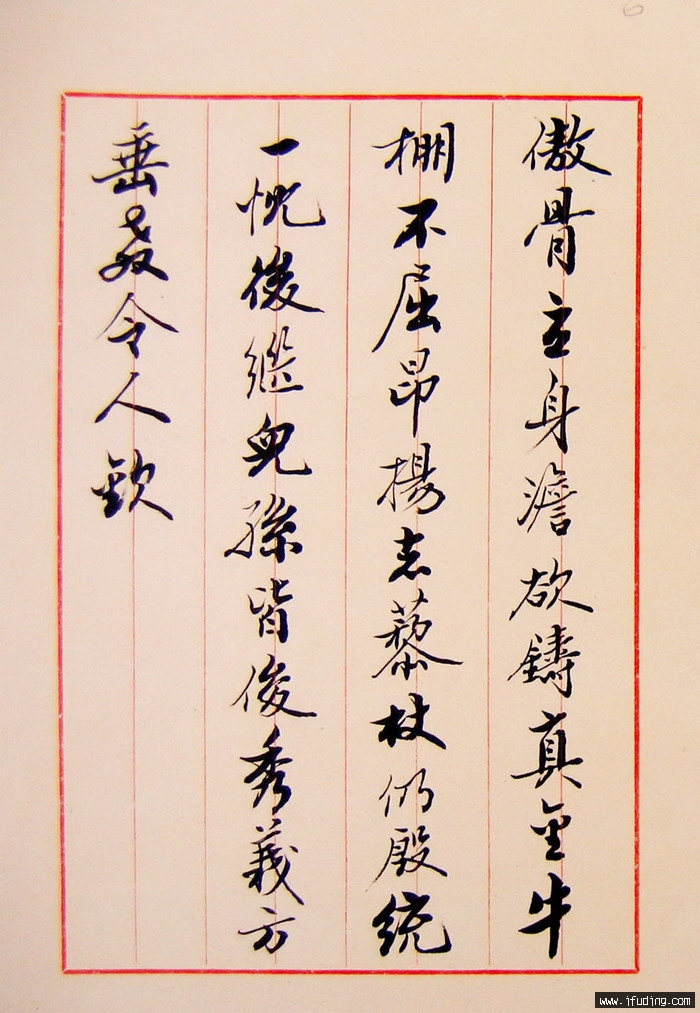 6
傲骨立身澹欲鑄真金牛
棚不屈昂揚志藜杖仍殷統
一忱後繼兒孫皆俊秀義方
垂令人欽
www.ifuding.com